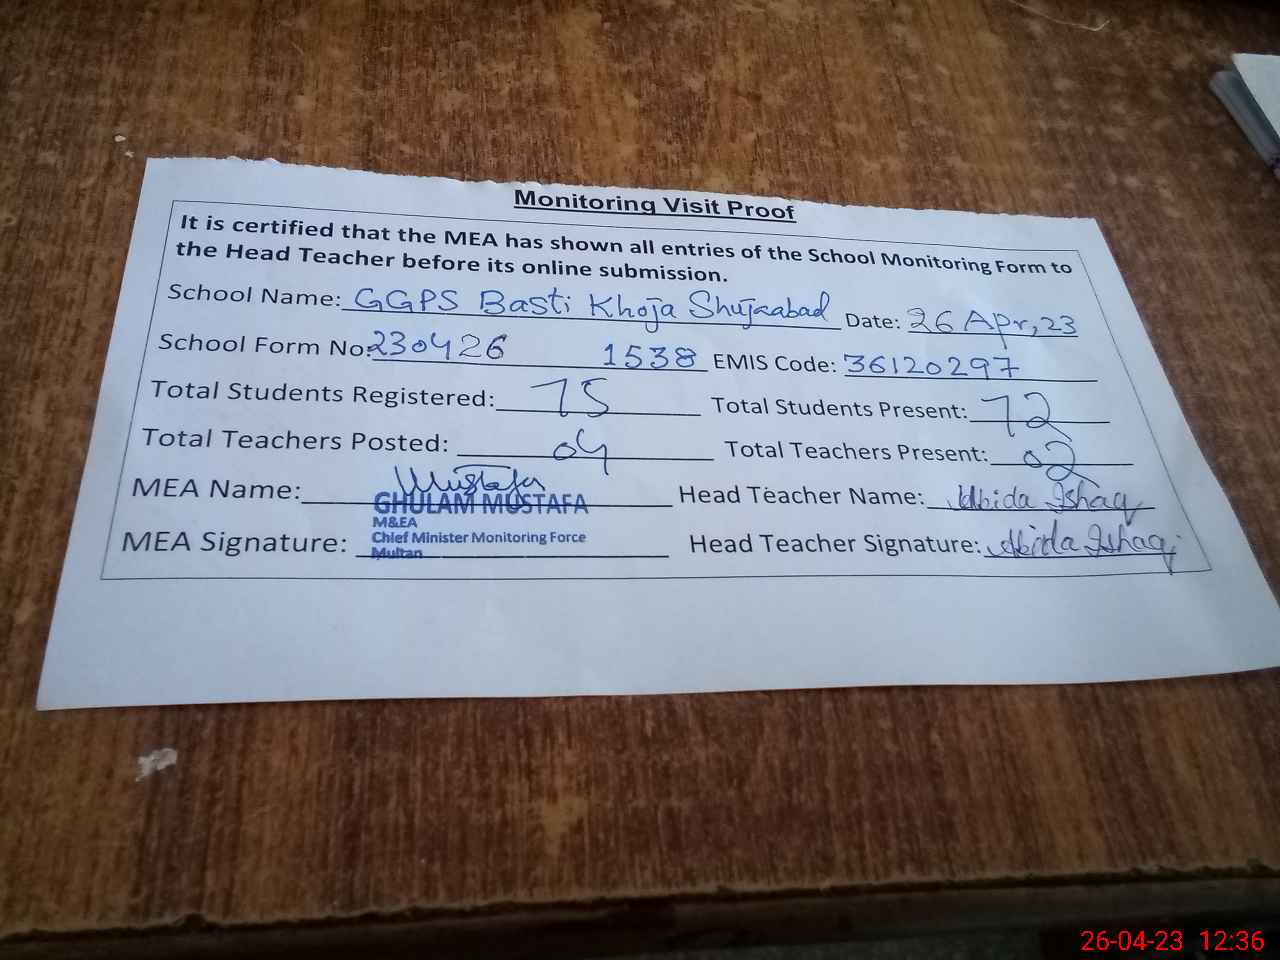 Monitoring Visit Proof
It is certified that the MEA has shown all entries of the School Monitoring Form to
the Head Teacher before its online submission.
School Name: GGPS Basti Khoja Shujaabad Date: 26 Apr, 23
School Form No: 230426 1538 EMIS Code: 36120297
Total Students Registered: 75 Total Students Present: 72
Total Teachers Posted: 04 Total Teachers Present: 02
MEA Name: Mustafa Head Teacher Name: Abida Ishaq
GHULAM MUSTAFA
M&EA
Chief Minister Monitoring Force
MEA Signature: Multan Head Teacher Signature: Abida Ishaq
26-04-23 12:36